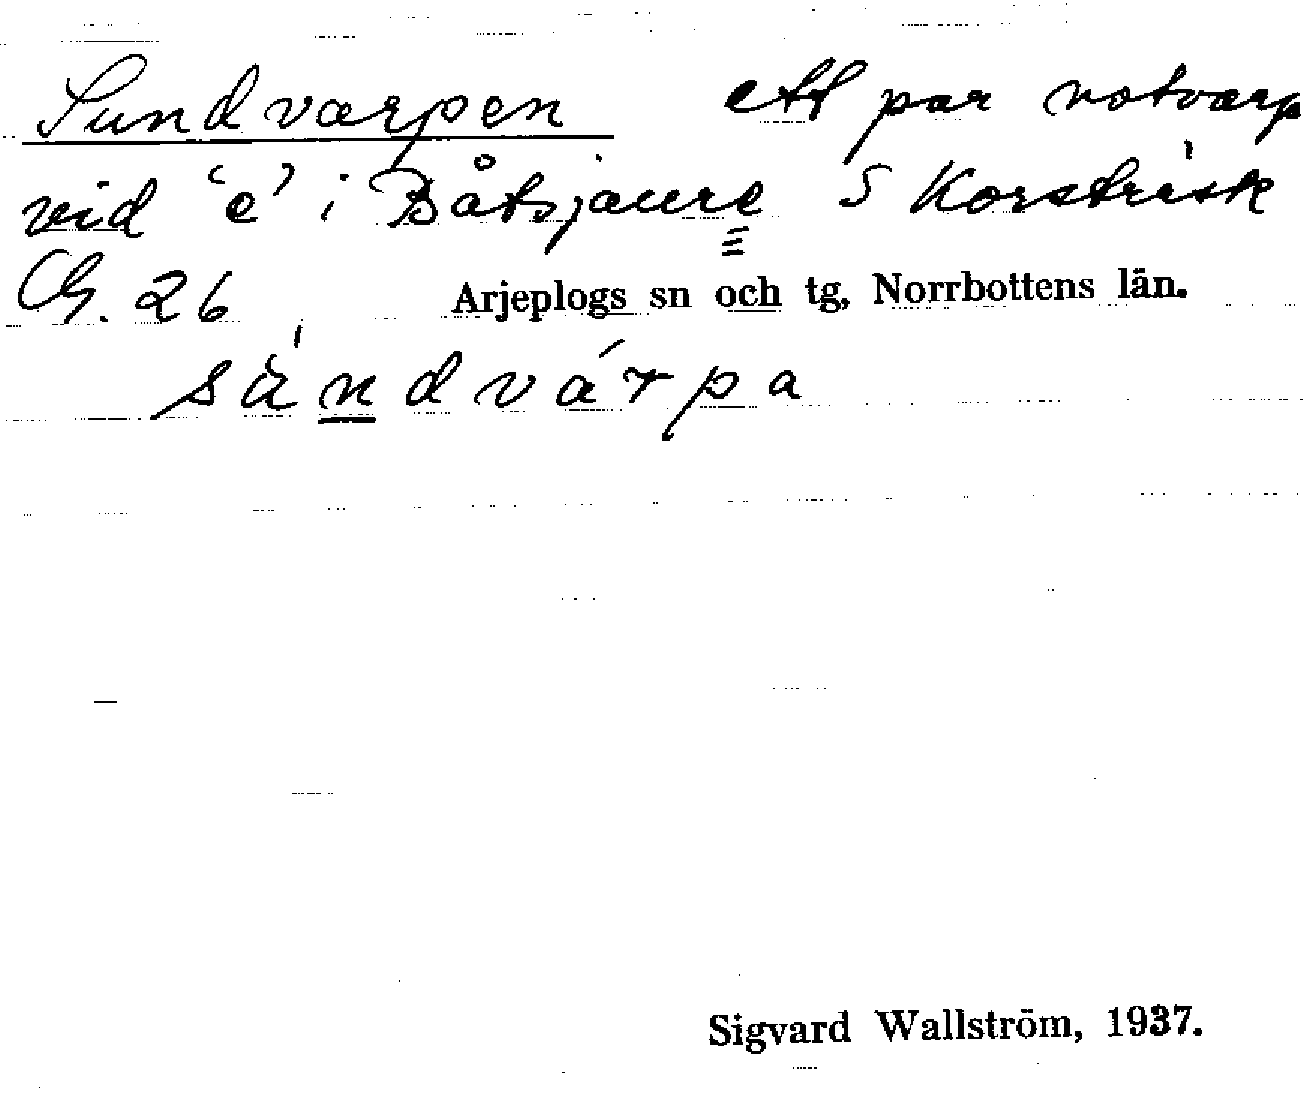 Sundvarpen ett par notvarp
vid 'e' i Båtsjaure S Korsträsk
G. 26 Arjeplogs sn och tg, Norrbottens län.
sändvárpa
Sigvard Wallström, 1937.